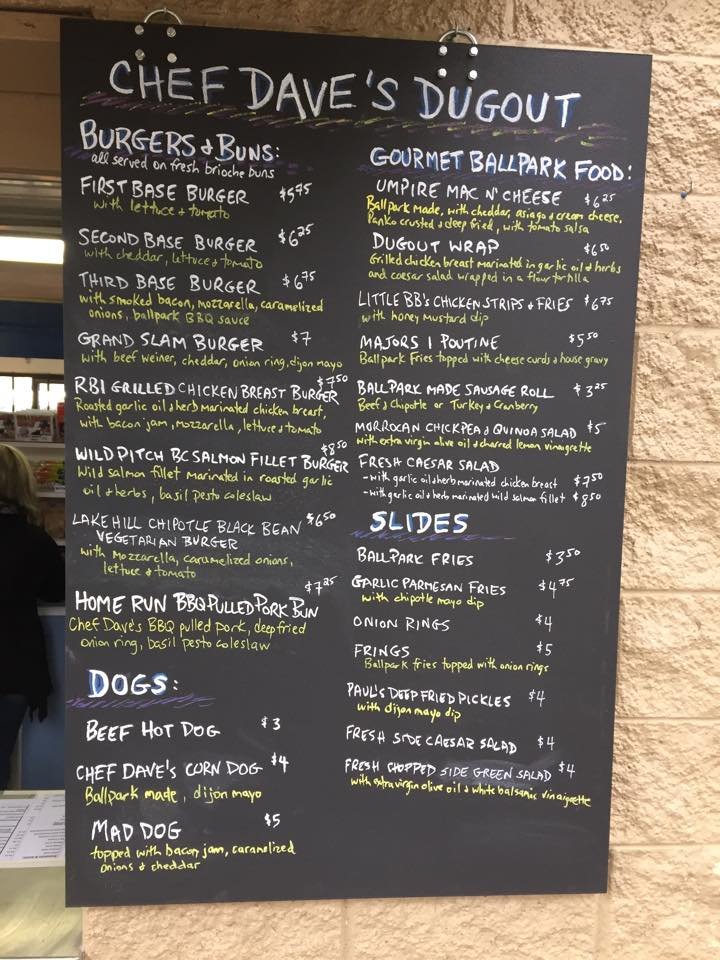 CHEF DAVE'S DUGOUT
BURGERS & BUNS:
all served on fresh brioche buns
FIRST BASE BURGER $5.75
with lettuce & tomato
SECOND BASE BURGER $6.25
with cheddar, lettuce & tomato
THIRD BASE BURGER $6.75
with smoked bacon, mozzarella, caramelized
onions, ballpark BBQ sauce
GRAND SLAM BURGER $7
with beef weiner, cheddar, onion ring, dijon mayo
RBI GRILLED CHICKEN BREAST BURGER $7.50
Roasted garlic oil & herb marinated chicken breast,
with bacon jam, mozzarella, lettuce & tomato
WILD PITCH BC SALMON FILLET BURGER $8.50
Wild salmon fillet marinated in roasted garlic
oil & herbs, basil pesto coleslaw
LAKE HILL CHIPOTLE BLACK BEAN $6.50
VEGETARIAN BURGER
with Mozzarella, caramelized onions,
lettuce & tomato
HOME RUN BBQ PULLED PORK BUN $7.25
Chef Dave's BBQ pulled pork, deep fried
onion ring, basil pesto coleslaw
DOGS:
BEEF HOT DOG $3
CHEF DAVE'S CORN DOG $4
Ballpark made, dijon mayo
MAD DOG $5
topped with bacon jam, caramelized
onions & cheddar
GOURMET BALLPARK FOOD:
UMPIRE MAC N' CHEESE $6.25
Ballpark made, with cheddar, asiago & cream cheese,
Panko crusted & deep fried, with tomato salsa
DUGOUT WRAP $6.50
Grilled chicken breast marinated in garlic oil & herbs
and caesar salad wrapped in a flour tortilla
LITTLE BB'S CHICKEN STRIPS & FRIES $6.75
with honey mustard dip
MAJORS 1 POUTINE $5.50
Ballpark Fries topped with cheese curds & house gravy
BALLPARK MADE SAUSAGE ROLL $3.25
Beef & Chipotle or Turkey & Cranberry
MORROCAN CHICKPEA & QUINOA SALAD $5
with extra virgin olive oil & charred lemon vinaigrette
FRESH CAESAR SALAD
- with garlic oil & herb marinated chicken breast $7.50
- with garlic oil & herb marinated wild salmon fillet $8.50
SLIDES
BALLPARK FRIES $3.50
GARLIC PARMESAN FRIES $4.75
with chipotle mayo dip
ONION RINGS $4
FRINGS $5
Ballpark fries topped with onion rings
PAUL'S DEEP FRIED PICKLES $4
with dijon mayo dip
FRESH SIDE CAESAR SALAD $4
FRESH CHOPPED SIDE GREEN SALAD $4
with extra virgin olive oil & white balsamic vinaigrette